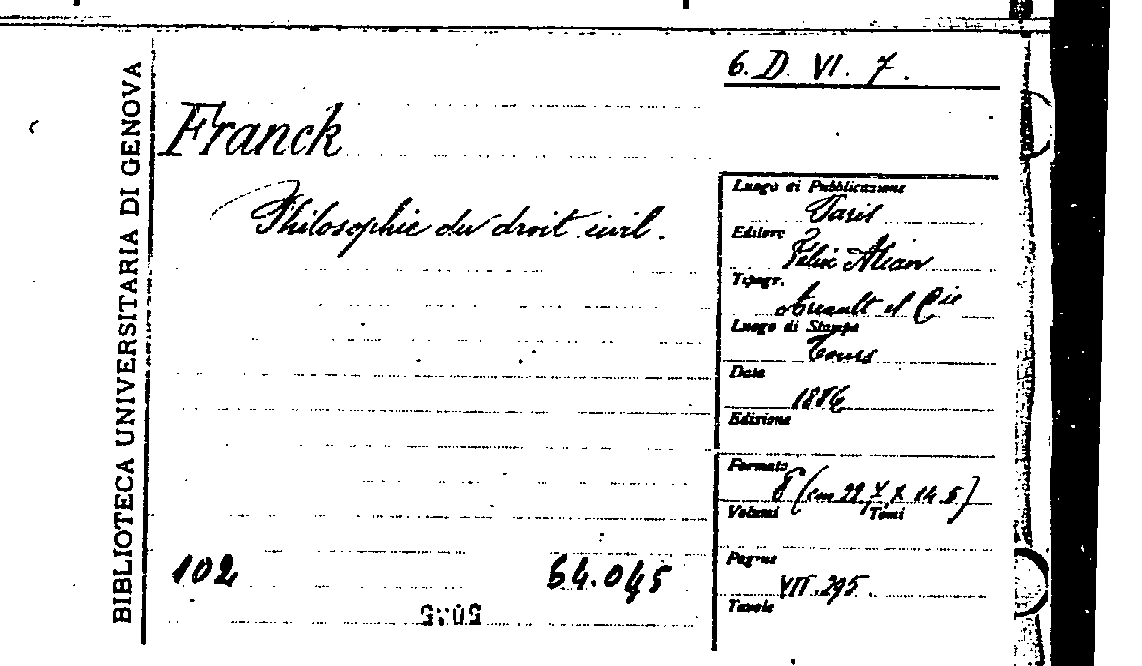 6. D. VI. 7.
BIBLIOTECA UNIVERSITARIA DI GENOVA
Franck
Philosophie du droit civil.
Luogo di Pubblicazione
Paris
Editore
Félix Alcan
Tipogr.
Arrault et Cie
Luogo di Stampa
Tours
Data
1886
Edizione
Formato
8° (cm 22,5 X 14.5)
Volumi Tomi
Pagine
VII.295.
Tavole
102 64.045